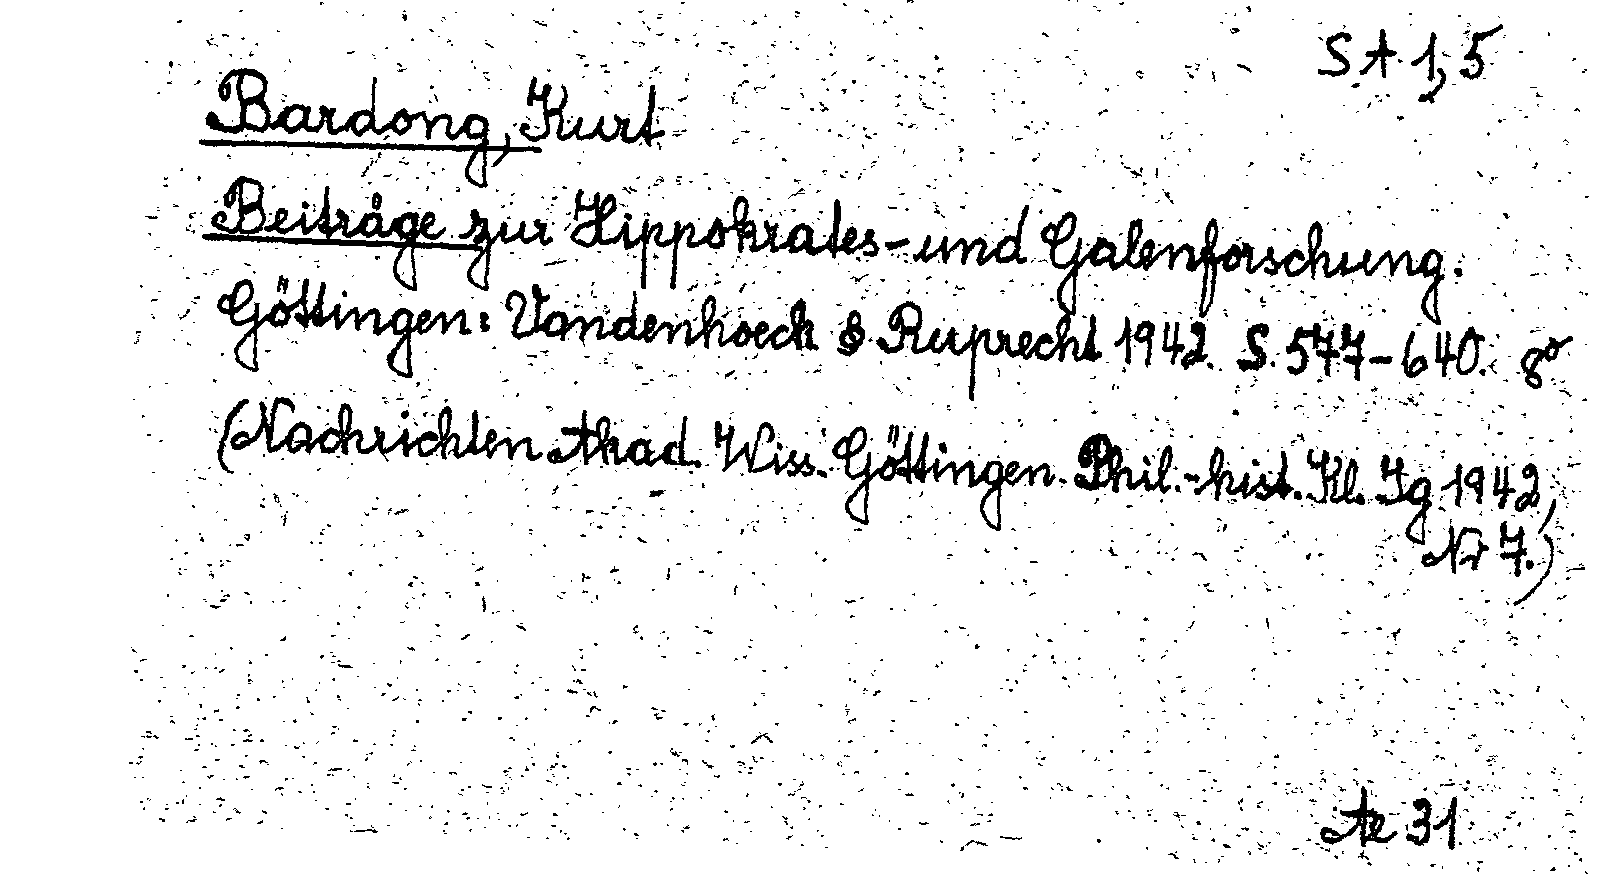 SA 1,5
Bardong, Kurt
Beiträge zur Hippokrates- und Galenforschung.
Göttingen: Vandenhoeck & Ruprecht 1942. S. 577-640. 8°
(Nachrichten Akad. Wiss. Göttingen. Phil.-hist. Kl. Jg 1942,
Nr 7.)
31